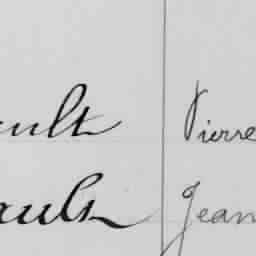 ault Pierre
ault Jean